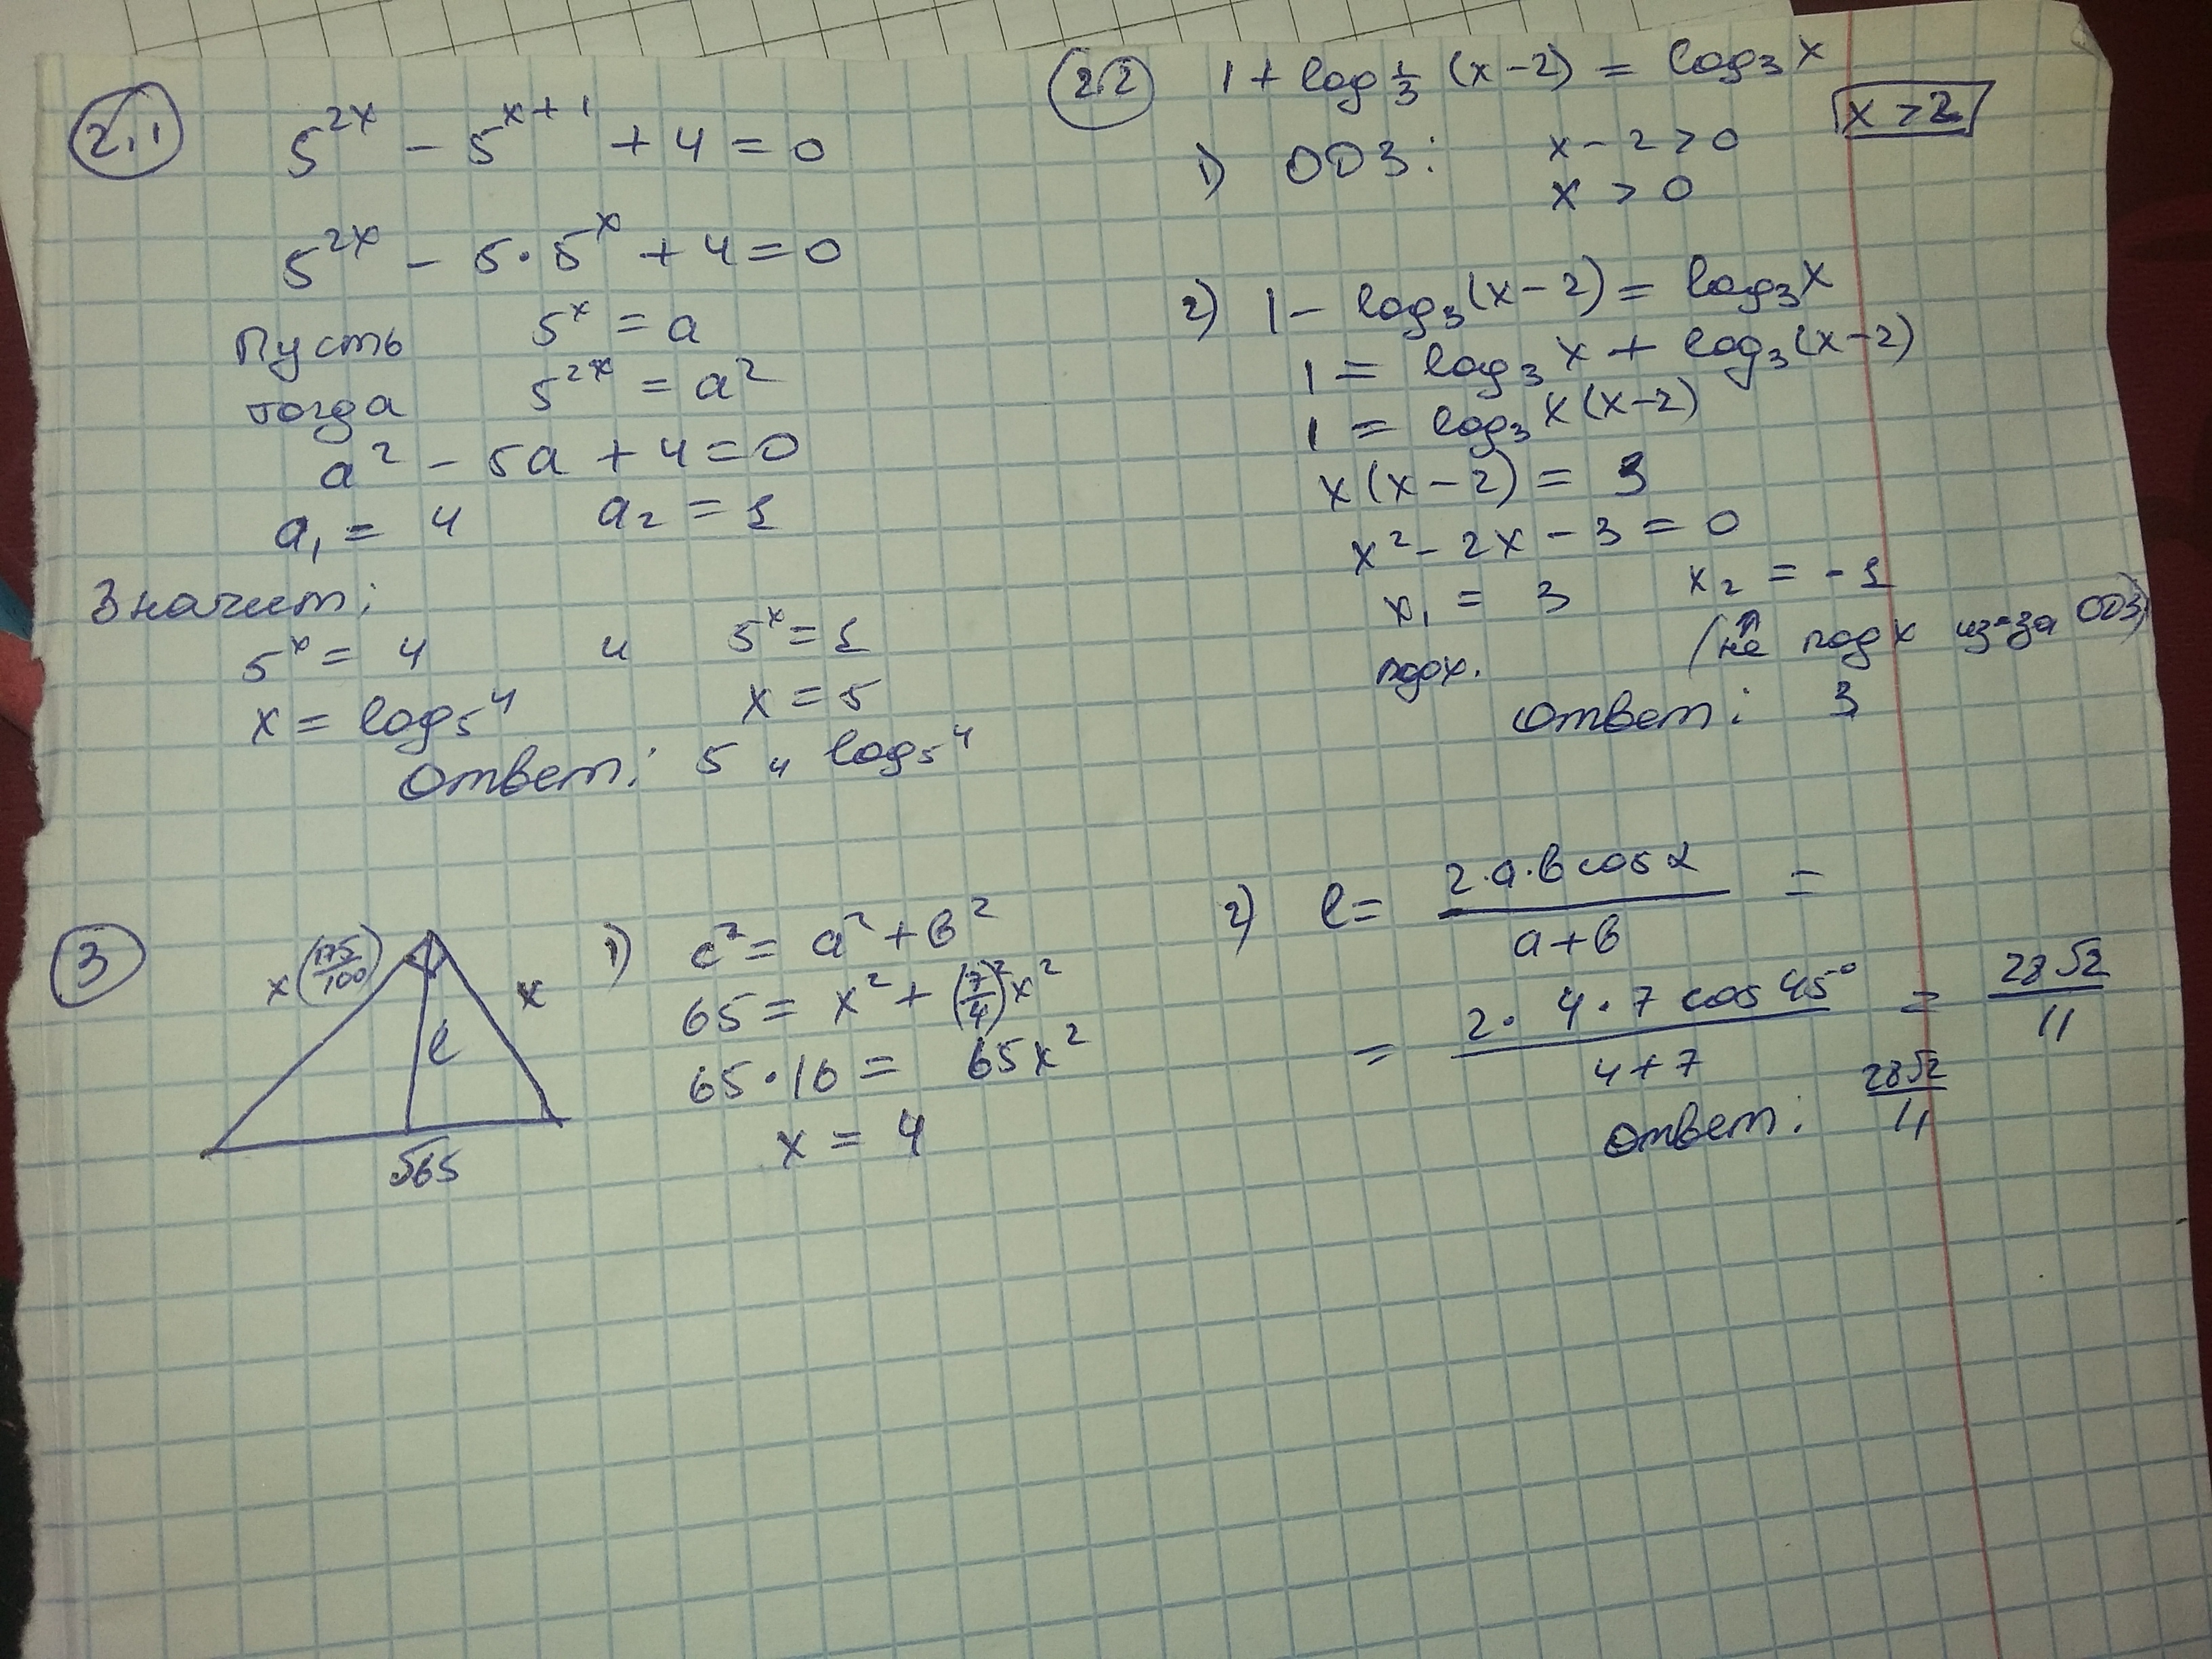 2.1
5^{2x} - 5^{x+1} + 4 = 0
5^{2x} - 5·5^x + 4 = 0
Пусть 5^x = a
тогда 5^{2x} = a^2
a^2 - 5a + 4 = 0
a_1 = 4 a_2 = 1
Значит:
5^x = 4 и 5^x = 1
x = log_5 4 x = 5
Ответ: 5 и log_5 4
2.2 1 + log_{1/3} (x-2) = log_3 x
1) ОДЗ: x - 2 > 0 x > 2
x > 0
2) 1 - log_3 (x-2) = log_3 x
1 = log_3 x + log_3 (x-2)
1 = log_3 x(x-2)
x(x-2) = 3
x^2 - 2x - 3 = 0
x_1 = 3 x_2 = -1
подх. (не подх из-за ОДЗ)
Ответ: 3
3
x(175/100) x
l
√65
1) c^2 = a^2 + b^2
65 = x^2 + (7/4)^2 x^2
65·16 = 65x^2
x = 4
2) l = 2·a·b cos α / a+b =
= 2·4·7 cos 45° / 4+7 = 28√2 / 11
Ответ: 28√2 / 11